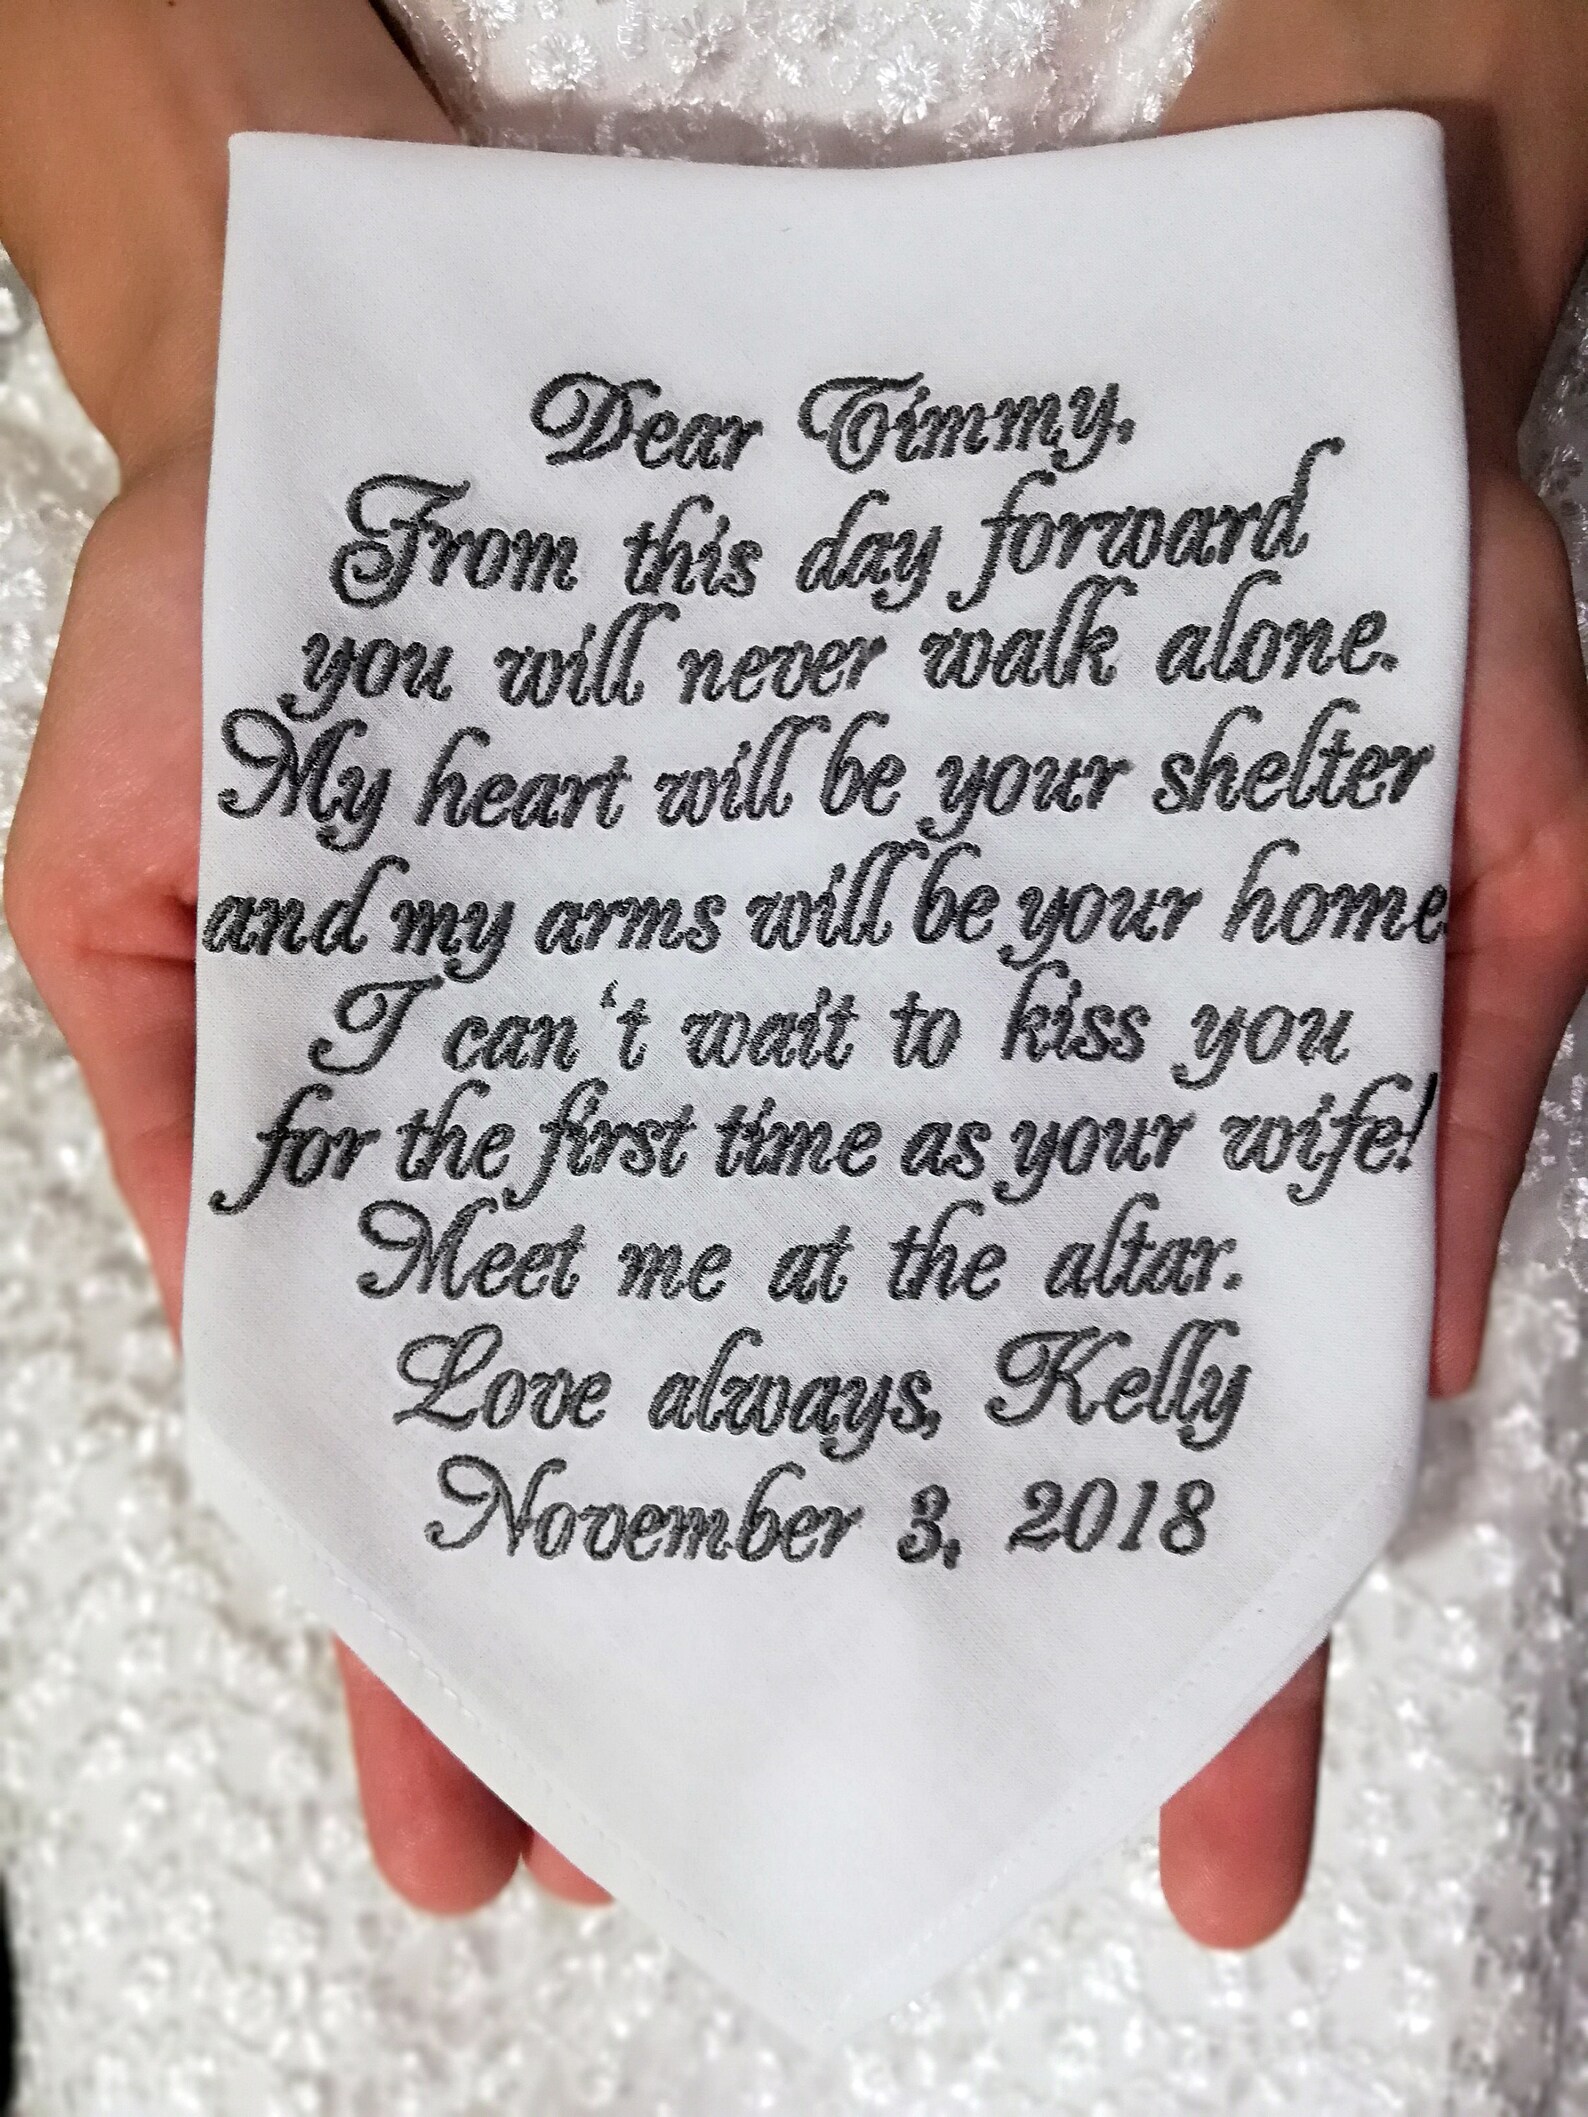 Dear Timmy,
From this day forward
you will never walk alone.
My heart will be your shelter
and my arms will be your home.
I can't wait to kiss you
for the first time as your wife!
Meet me at the altar.
Love always, Kelly
November 3, 2018